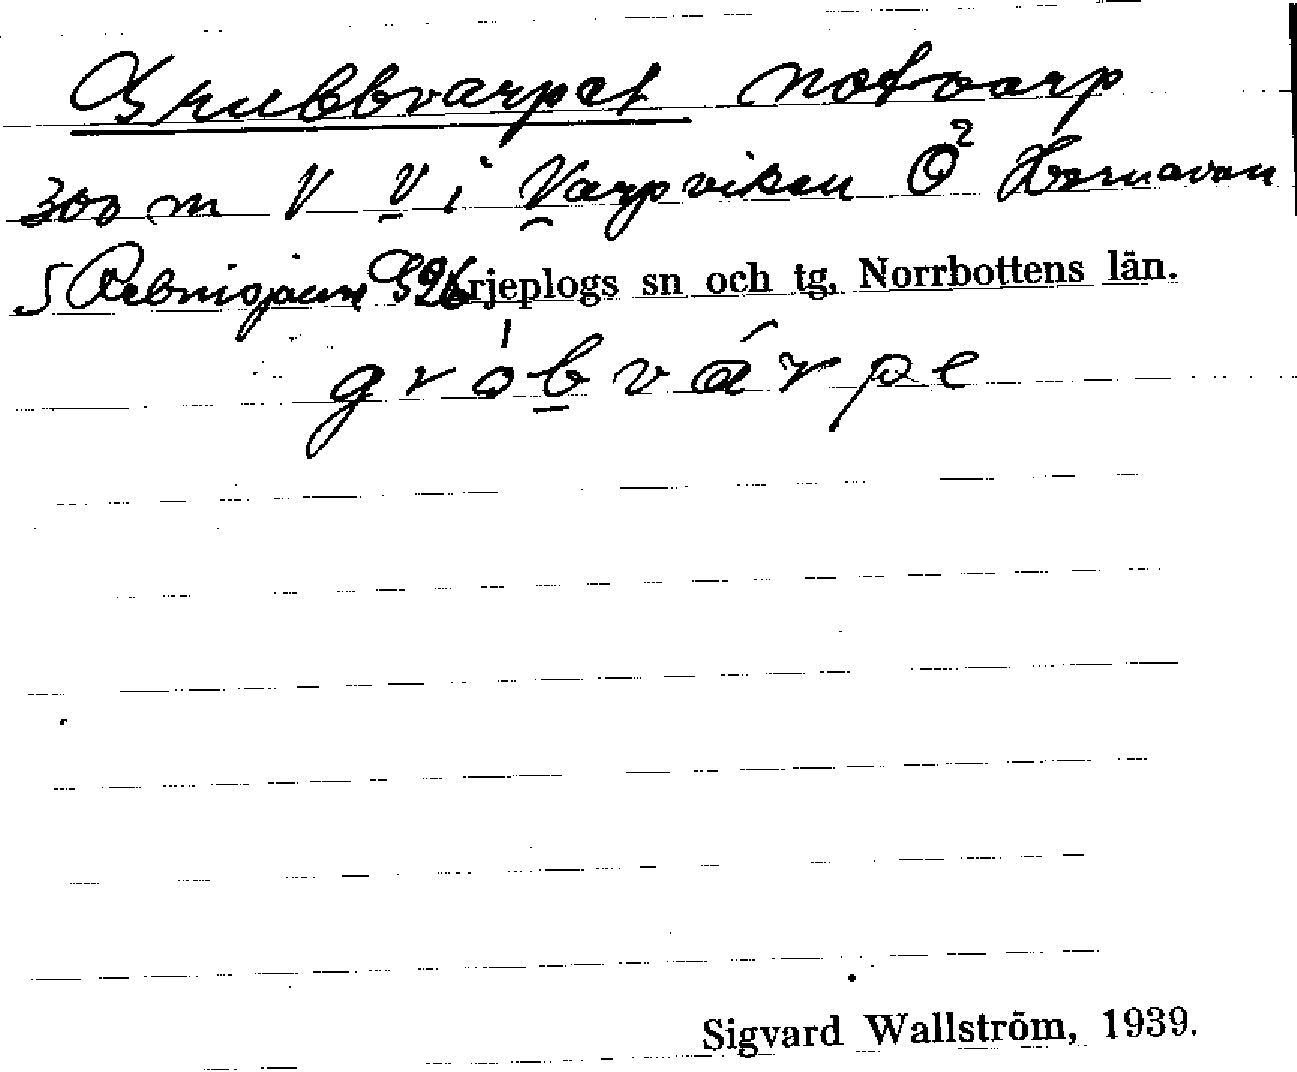 Grubbvarpet notvarp
300 m V V i Varpviken Ö² Hornavan
S Rebnisjaur 326 Arjeplogs sn och tg, Norrbottens län.
gróbvárpe
Sigvard Wallström, 1939.